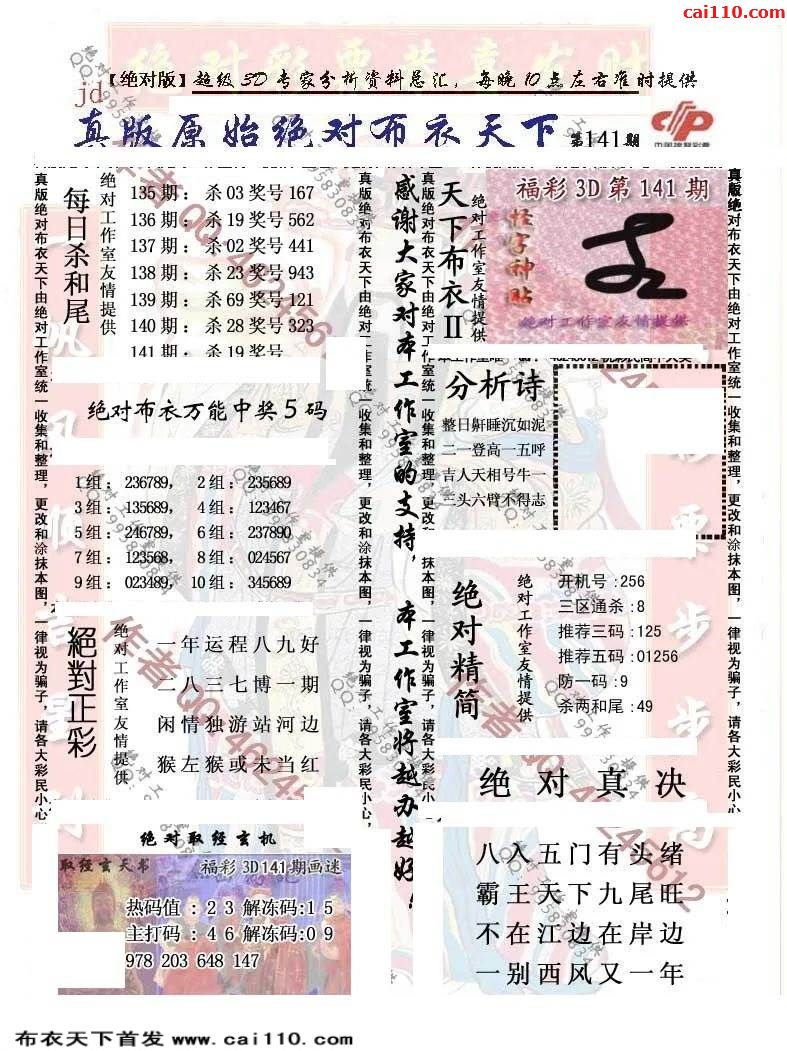 cai110.com
【绝对版】超级3D专家分析资料总汇，每晚10点左右准时提供
jd
真版原始绝对布衣天下 第141期
中国福利彩票
真版绝对布衣天下由绝对工作室统一收集和整理，更改和涂抹本图，一律视为骗子，请各大彩民小心，
每日杀和尾
绝对工作室友情提供
135期：杀03奖号167
136期：杀19奖号562
137期：杀02奖号441
138期：杀23奖号943
139期：杀69奖号121
140期：杀28奖号323
141期：杀19奖号
绝对布衣万能中奖5码
1组：236789， 2组：235689
3组：135689， 4组：123467
5组：246789， 6组：237890
7组：123568， 8组：024567
9组：023489， 10组：345689
絕對正彩
绝对工作室友情提供
一年运程八九好
二八三七博一期
闲情独游站河边
猴左猴或未当红
绝对取经玄机
取经玄天书 福彩3D141期画迷
热码值：23解冻码:15
主打码：46解冻码:09
978 203 648 147
真版绝对布衣天下由绝对工作室统一收集和整理，更改和涂抹本图，一律视为骗子，请各大彩民小心，
感谢大家对本工作室的支持，本工作室将越办越好！
真版绝对布衣天下由绝对工作室统一收集和整理，更改和涂抹本图，一律视为骗子，请各大彩民小心，
天下布衣II
绝对工作室友情提供
福彩3D第141期
怪字神贴
绝对工作室友情提供
分析诗
整日鼾睡沉如泥
二一登高一五呼
吉人天相号牛一
三头六臂不得志
绝对精简
绝对工作室友情提供
开机号:256
三区通杀:8
推荐三码:125
推荐五码:01256
防一码:9
杀两和尾:49
绝对真决
八入五门有头绪
霸王天下九尾旺
不在江边在岸边
一别西风又一年
真版绝对布衣天下由绝对工作室统一收集和整理，更改和涂抹本图，一律视为骗子，请各大彩民小心，
布衣天下首发 www.cai110.com